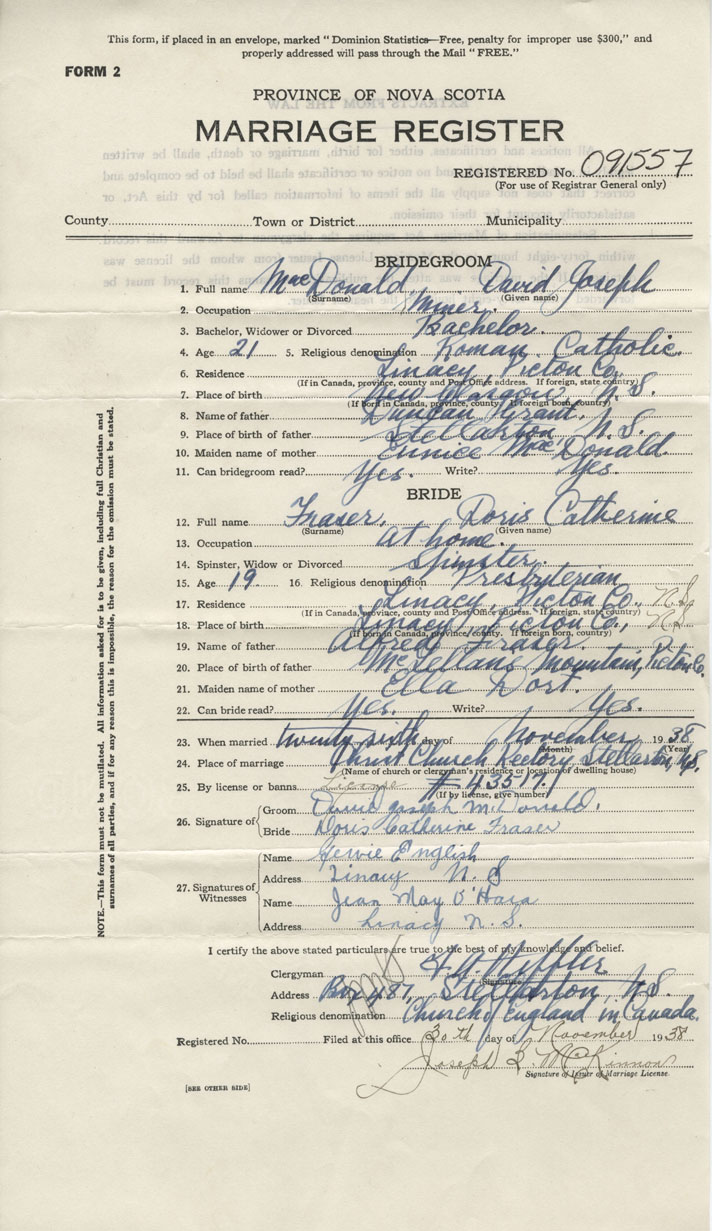 This form, if placed in an envelope, marked "Dominion Statistics—Free, penalty for improper use $300," and
properly addressed will pass through the Mail "FREE."
FORM 2
PROVINCE OF NOVA SCOTIA
MARRIAGE REGISTER
REGISTERED No. 091557
(For use of Registrar General only)
County Town or District Municipality
BRIDEGROOM
1. Full name MacDonald, David Joseph
(Surname) (Given name)
2. Occupation Miner.
3. Bachelor, Widower or Divorced Bachelor.
4. Age 21 5. Religious denomination Roman Catholic.
6. Residence Linacy, Pictou Co.
(If in Canada, province, county and Post Office address. If foreign, state country)
7. Place of birth New Glasgow N.S.
(If born in Canada, province, county. If foreign born, country)
8. Name of father Duncan Grant.
9. Place of birth of father Stellarton N.S.
10. Maiden name of mother Eunice MacDonald.
11. Can bridegroom read? Yes. Write? Yes.
BRIDE
12. Full name Fraser, Doris Catherine
(Surname) (Given name)
13. Occupation At home.
14. Spinster, Widow or Divorced Spinster.
15. Age 19. 16. Religious denomination Presbyterian
17. Residence Linacy, Pictou Co., N.S.
(If in Canada, province, county and Post Office address. If foreign, state country)
18. Place of birth Linacy, Pictou Co., N.S.
(If born in Canada, province, county. If foreign born, country)
19. Name of father Alfred Fraser.
20. Place of birth of father McLellans Mountain, Pictou Co.
21. Maiden name of mother Ella Dort.
22. Can bride read? Yes. Write? Yes.
23. When married twenty sixth day of November 1938
(Month) (Year)
24. Place of marriage Christ Church Rectory Stellarton, N.S.
(Name of church or clergyman's residence or location of dwelling house)
25. By license or banns License # 43571
(If by license, give number)
26. Signature of Groom David Joseph McDonald.
Bride Doris Catherine Fraser
27. Signatures of Witnesses
Name English
Address Linacy N.S
Name Jean May O'Hara
Address Linacy N.S.
I certify the above stated particulars are true to the best of my knowledge and belief.
Clergyman
(Signature)
Address Box 487, Stellarton, N.S.
Religious denomination Church of England in Canada.
Registered No. Filed at this office 30th day of November 1938
Joseph McKinnon
Signature of Issuer of Marriage License.
[SEE OTHER SIDE]
NOTE.—This form must not be mutilated. All information asked for is to be given, including full Christian and
surnames of all parties, and if for any reason this is impossible, the reason for the omission must be stated.